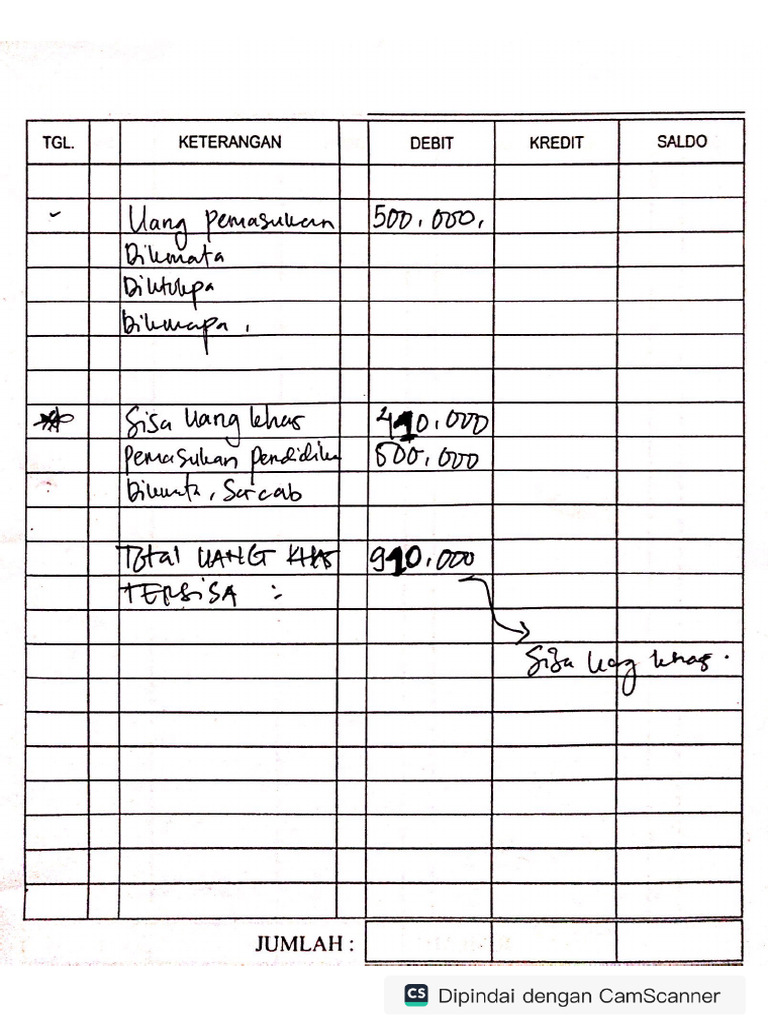 TGL. KETERANGAN DEBIT KREDIT SALDO
Uang pemasukan 500.000,
Dikmata
Dikmapa,
Sisa Uang khas 410.000
Pemasukan pendidikn 500.000
Dikmata, Sarcab
Total UANG KHAS 910.000
TERSISA :
Sisa uag khas.
JUMLAH :
CS Dipindai dengan CamScanner